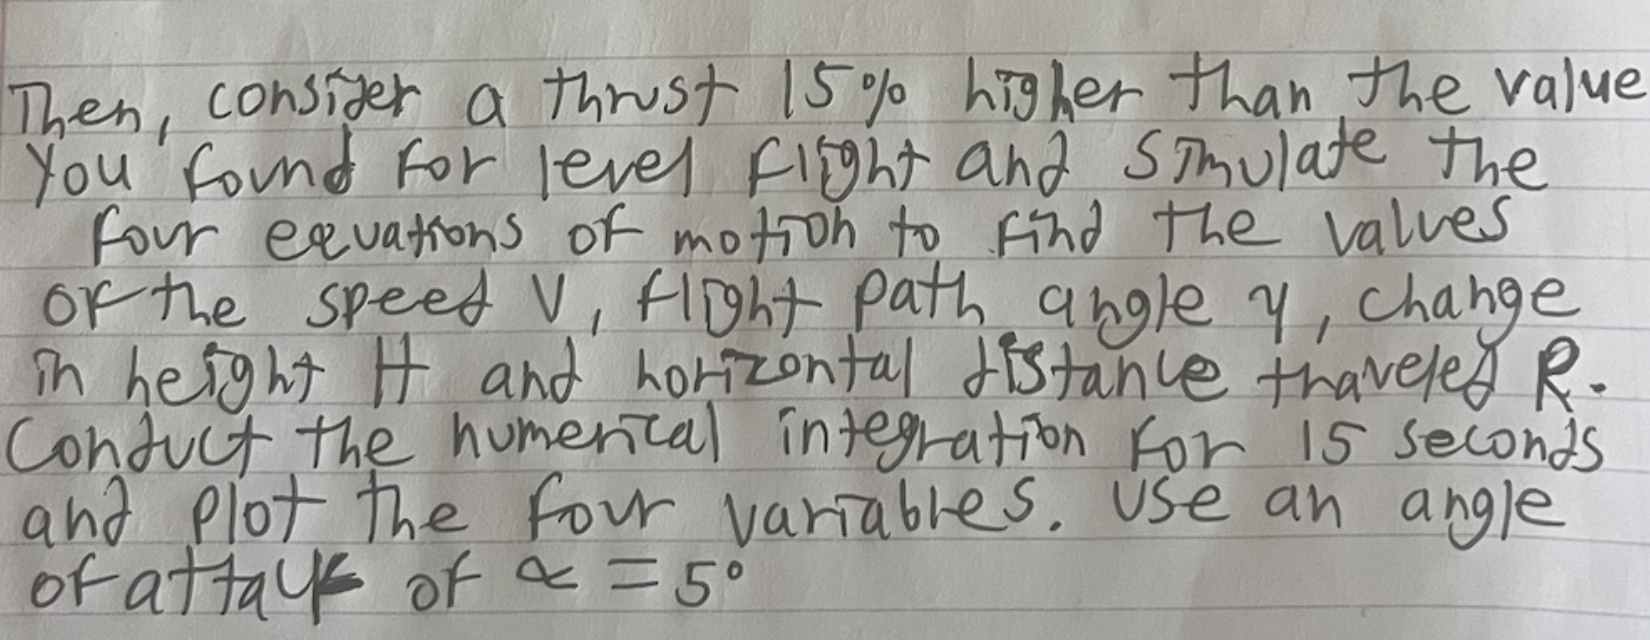 Then, consider a thrust 15% higher than the value
you found for level flight and simulate the
four equations of motion to find the values
of the speed V, flight path angle γ, change
in height H and horizontal distance traveled R.
Conduct the numerical integration for 15 seconds
and plot the four variables. Use an angle
of attack of α = 5°